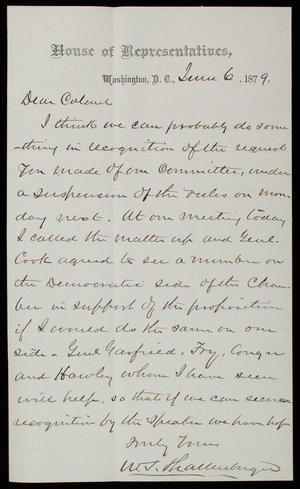 House of Representatives,
Washington, D. C., June 6, 1879.
Dear Colonel
I think we can probably do some-
-thing in recognition of the request
you made of our Committee, under
a suspension of the rules on Mon-
day next. At our meeting today
I called the matter up and Genl.
Cook agreed to see a number on
the Democratic side of the Cham-
ber in support of the proposition
if I would do the same on our
side. Genl Garfield, Frye, Conger
and Hawley whom I have seen
will help, so that if we can secure
recognition by the Speaker we have hope
Truly Yours
W. S. Shallenberger